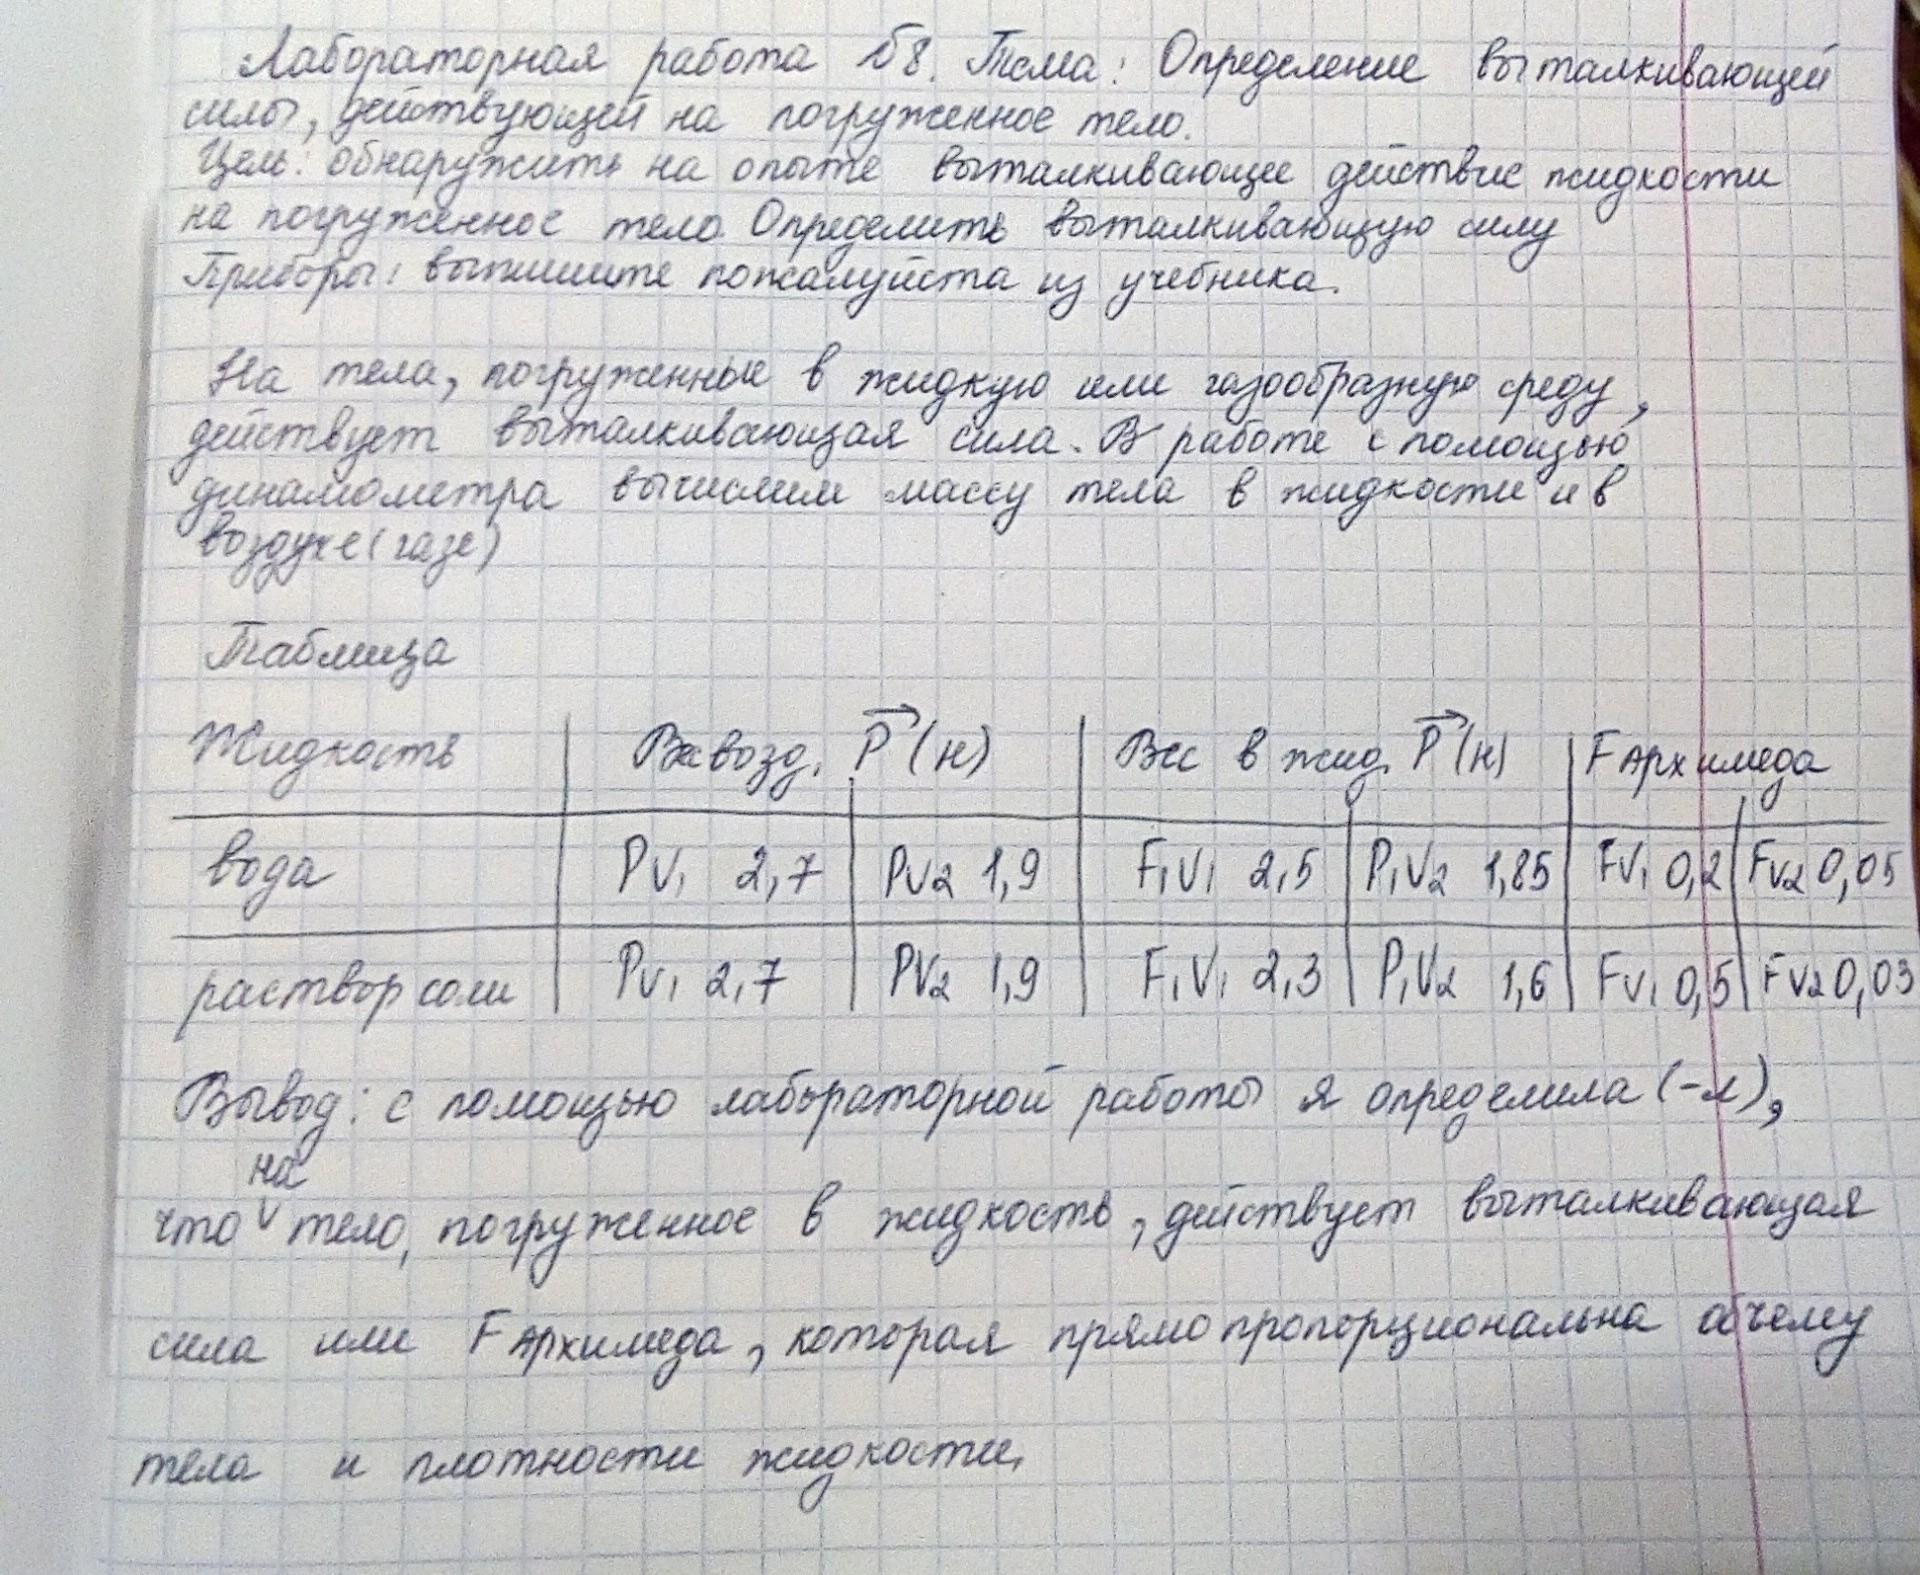 Лабораторная работа №8. Тема: Определение выталкивающей
силы, действующей на погруженное тело.
Цель: обнаружить на опыте выталкивающее действие жидкости
на погруженное тело. Определить выталкивающую силу
Приборы: выпишите пожалуйста из учебника.
На тела, погруженные в жидкую или газообразную среду,
действует выталкивающая сила. В работе с помощью
динамометра вычислим массу тела в жидкости и в
воздухе (газе)
Таблица
Жидкость Вес возд. P (н) Вес в жид. P (н) F Архимеда
вода PV1 2,7 PV2 1,9 F1V1 2,5 P1V2 1,85 FV1 0,2 FV2 0,05
раствор соли PV1 2,7 PV2 1,9 F1V1 2,3 P1V2 1,6 FV1 0,5 FV2 0,03
Вывод: с помощью лабораторной работы я определила (-л),
что на тело, погруженное в жидкость, действует выталкивающая
сила или F Архимеда, которая прямо пропорциональна объему
тела и плотности жидкости.